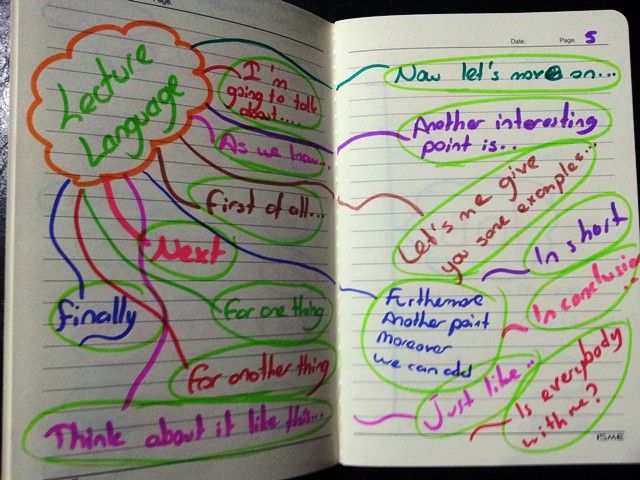 Page.
Lecture
Language
I'm
going to talk
about....
As we know...
First of all...
Next
Finally
For one thing
For another thing
Think about it like this...
Date.
Page. 5
Now let's move on...
Another interesting
point is..
Let's me give
you some examples...
In short
Furthermore
Another point
Moreover
we can add
In conclusion
...
Just like..
Is everybody
with me?
ISME